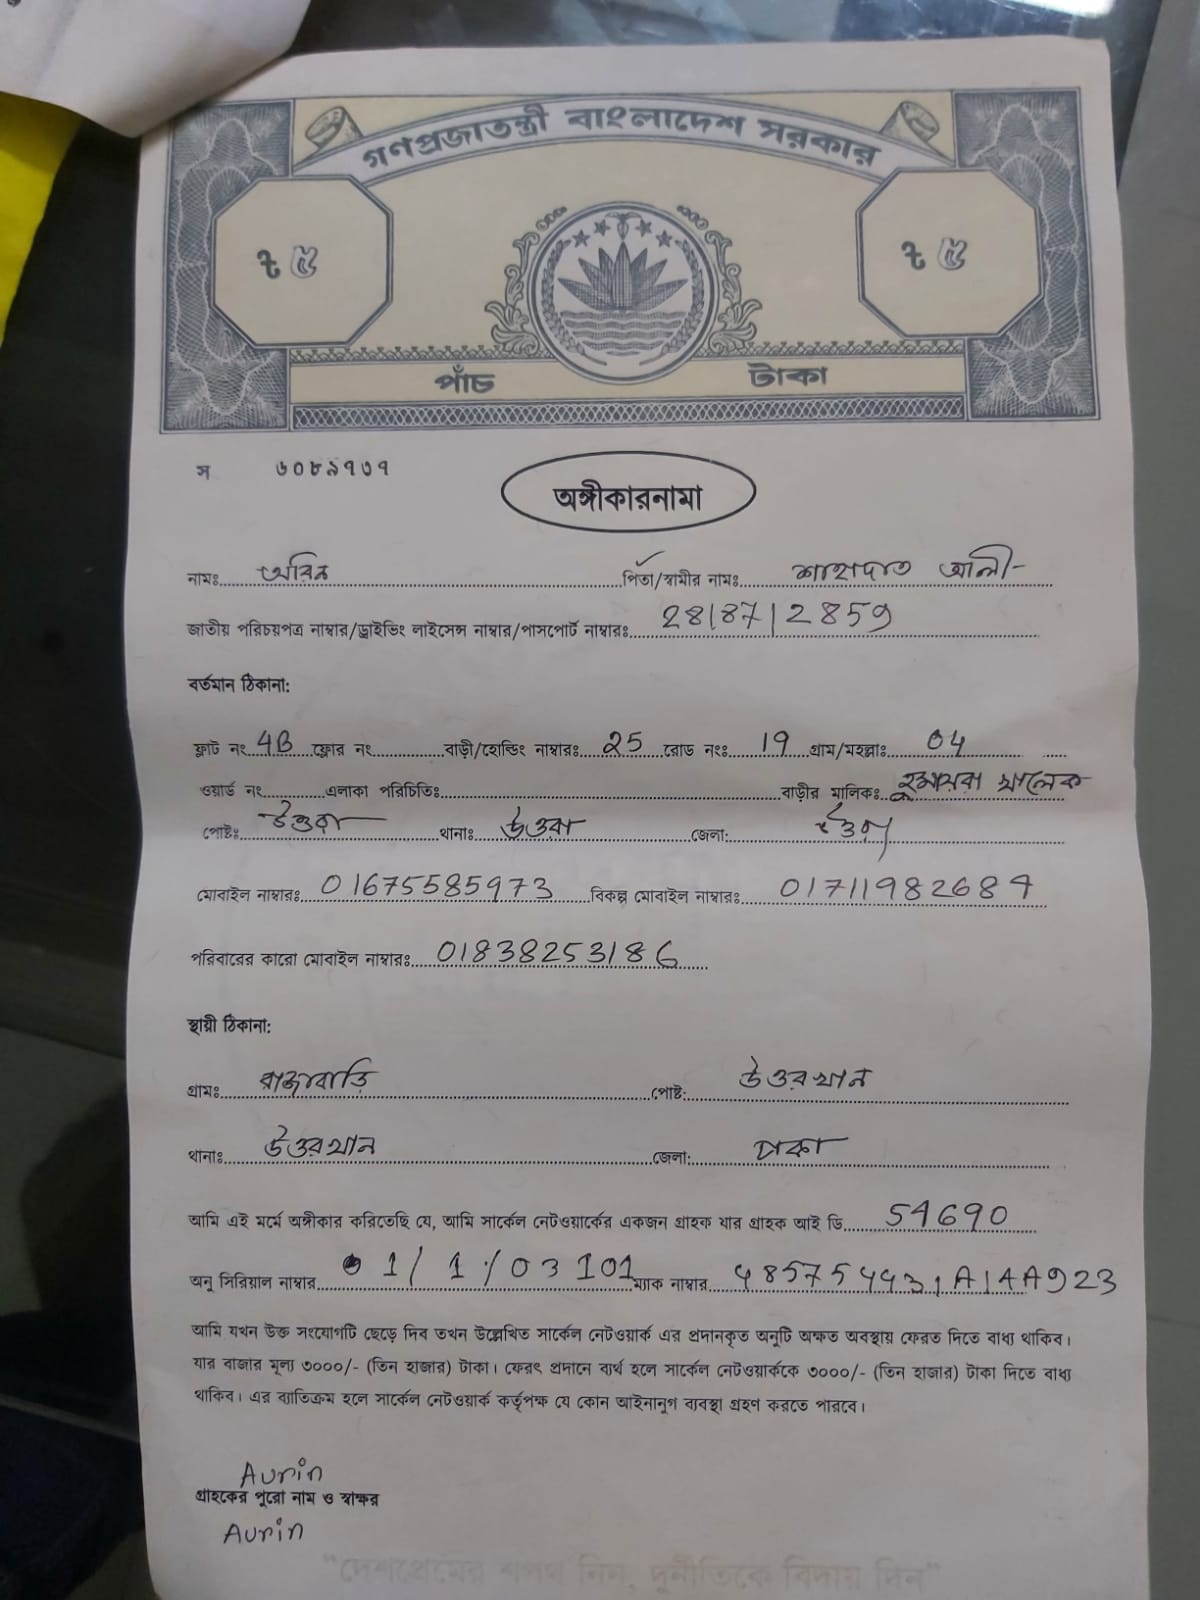 গণপ্রজাতন্ত্রী বাংলাদেশ সরকার
ট ৫ ট ৫
পাঁচ টাকা
স ৬০৮৯৭৩৭
অঙ্গীকারনামা
নামঃ অরিন পিতা/স্বামীর নামঃ শাহাদাত আলী
জাতীয় পরিচয়পত্র নাম্বার/ড্রাইভিং লাইসেন্স নাম্বার/পাসপোর্ট নাম্বারঃ 2818712859
বর্তমান ঠিকানা:
ফ্লাট নং 4B ফ্লোর নং বাড়ী/হোল্ডিং নাম্বারঃ 25 রোড নংঃ 19 গ্রাম/মহল্লাঃ 04
ওয়ার্ড নং এলাকা পরিচিতিঃ বাড়ীর মালিকঃ হুমায়রা খালেক
পোষ্টঃ উত্তরা থানাঃ উওরা জেলা:
মোবাইল নাম্বারঃ 01675585973 বিকল্প মোবাইল নাম্বারঃ
পরিবারের কারো মোবাইল নাম্বারঃ 01838253186
স্থায়ী ঠিকানা:
গ্রামঃ রাজাবাড়ি পোষ্ট: উওরখান
থানাঃ উওরখান জেলা: ঢাকা
আমি এই মর্মে অঙ্গীকার করিতেছি যে, আমি সার্কেল নেটওয়ার্কের একজন গ্রাহক যার গ্রাহক আই ডি 54690
অনু সিরিয়াল নাম্বার ম্যাক নাম্বার
আমি যখন উক্ত সংযোগটি ছেড়ে দিব তখন উল্লেখিত সার্কেল নেটওয়ার্ক এর প্রদানকৃত অনুটি অক্ষত অবস্থায় ফেরত দিতে বাধ্য থাকিব।
যার বাজার মূল্য ৩০০০/- (তিন হাজার) টাকা। ফেরৎ প্রদানে ব্যর্থ হলে সার্কেল নেটওয়ার্ককে ৩০০০/- (তিন হাজার) টাকা দিতে বাধ্য
থাকিব। এর ব্যতিক্রম হলে সার্কেল নেটওয়ার্ক কর্তৃপক্ষ যে কোন আইনানুগ ব্যবস্থা গ্রহণ করতে পারবে।
Aurin
গ্রাহকের পুরো নাম ও স্বাক্ষর
Aurin
"দেশপ্রেমের শপথ নিন, দুর্নীতিকে বিদায় দিন"